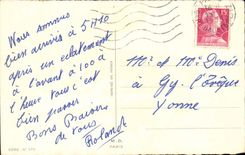 Nous sommes
bien arrivés à 5H10
après un éclatement
à l'avant à 100 à
l'heure tous c'est
bien passer
Bons Baisers
de tous
Roland
M. et Mme Denis
à
Gy l'Évêque
Yonne
PARIS